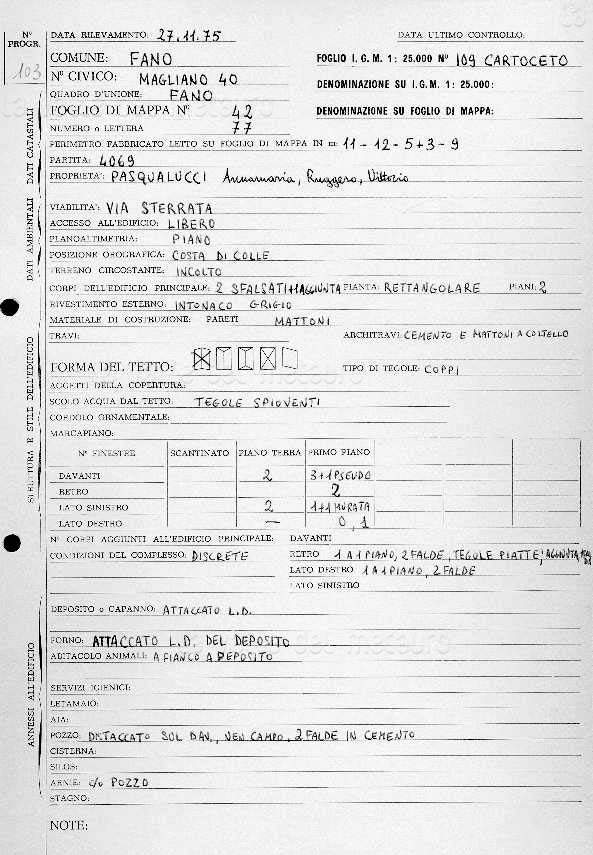 N° PROGR.
103
DATA RILEVAMENTO: 27.11.75 DATA ULTIMO CONTROLLO:
COMUNE: FANO FOGLIO I. G. M. 1: 25.000 N° 109 CARTOCETO
N° CIVICO: MAGLIANO 40 DENOMINAZIONE SU I.G.M. 1: 25.000:
QUADRO D'UNIONE: FANO
FOGLIO DI MAPPA N° 42 DENOMINAZIONE SU FOGLIO DI MAPPA:
NUMERO o LETTERA 77
PERIMETRO FABBRICATO LETTO SU FOGLIO DI MAPPA IN m: 11-12-5+3-9
PARTITA: 4069
PROPRIETA': PASQUALUCCI Annamaria, Ruggero, Vittorio
DATI CATASTALI
VIABILITA': VIA STERRATA
ACCESSO ALL'EDIFICIO: LIBERO
PLANOALTIMETRIA: PIANO
POSIZIONE OROGRAFICA: COSTA DI COLLE
TERRENO CIRCOSTANTE: INCOLTO
DATI AMBIENTALI
CORPI DELL'EDIFICIO PRINCIPALE: 2 SFALSATI+1AGGIUNTA PIANTA: RETTANGOLARE PIANI: 2
RIVESTIMENTO ESTERNO: INTONACO GRIGIO
MATERIALE DI COSTRUZIONE: PARETI MATTONI
TRAVI: ARCHITRAVI: CEMENTO E MATTONI A COLTELLO
FORMA DEL TETTO: TIPO DI TEGOLE: COPPI
AGGETTI DELLA COPERTURA:
SCOLO ACQUA DAL TETTO: TEGOLE SPIOVENTI
CORDOLO ORNAMENTALE:
MARCAPIANO:
N° FINESTRE SCANTINATO PIANO TERRA PRIMO PIANO
DAVANTI 2 3+1PSEUDO
RETRO 2
LATO SINISTRO 2 1+1MURATA
LATO DESTRO — 0,1
STRUTTURA E STILE DELL'EDIFICIO
N° CORPI AGGIUNTI ALL'EDIFICIO PRINCIPALE: DAVANTI
CONDIZIONI DEL COMPLESSO: DISCRETE RETRO 1 A 1 PIANO, 2 FALDE, TEGOLE PIATTE, AGGIUNTA
LATO DESTRO 1 A 1 PIANO, 2 FALDE
LATO SINISTRO
DEPOSITO o CAPANNO: ATTACCATO L.D.
FORNO: ATTACCATO L.D. DEL DEPOSITO
ABITACOLO ANIMALI: A FIANCO A DEPOSITO
SERVIZI IGIENICI:
LETAMAIO:
AIA:
POZZO: DISTACCATO SUL DAV., NEL CAMPO, 2 FALDE IN CEMENTO
CISTERNA:
SILOS:
ARNIE: c/o POZZO
STAGNO:
ANNESSI ALL'EDIFICIO
NOTE: